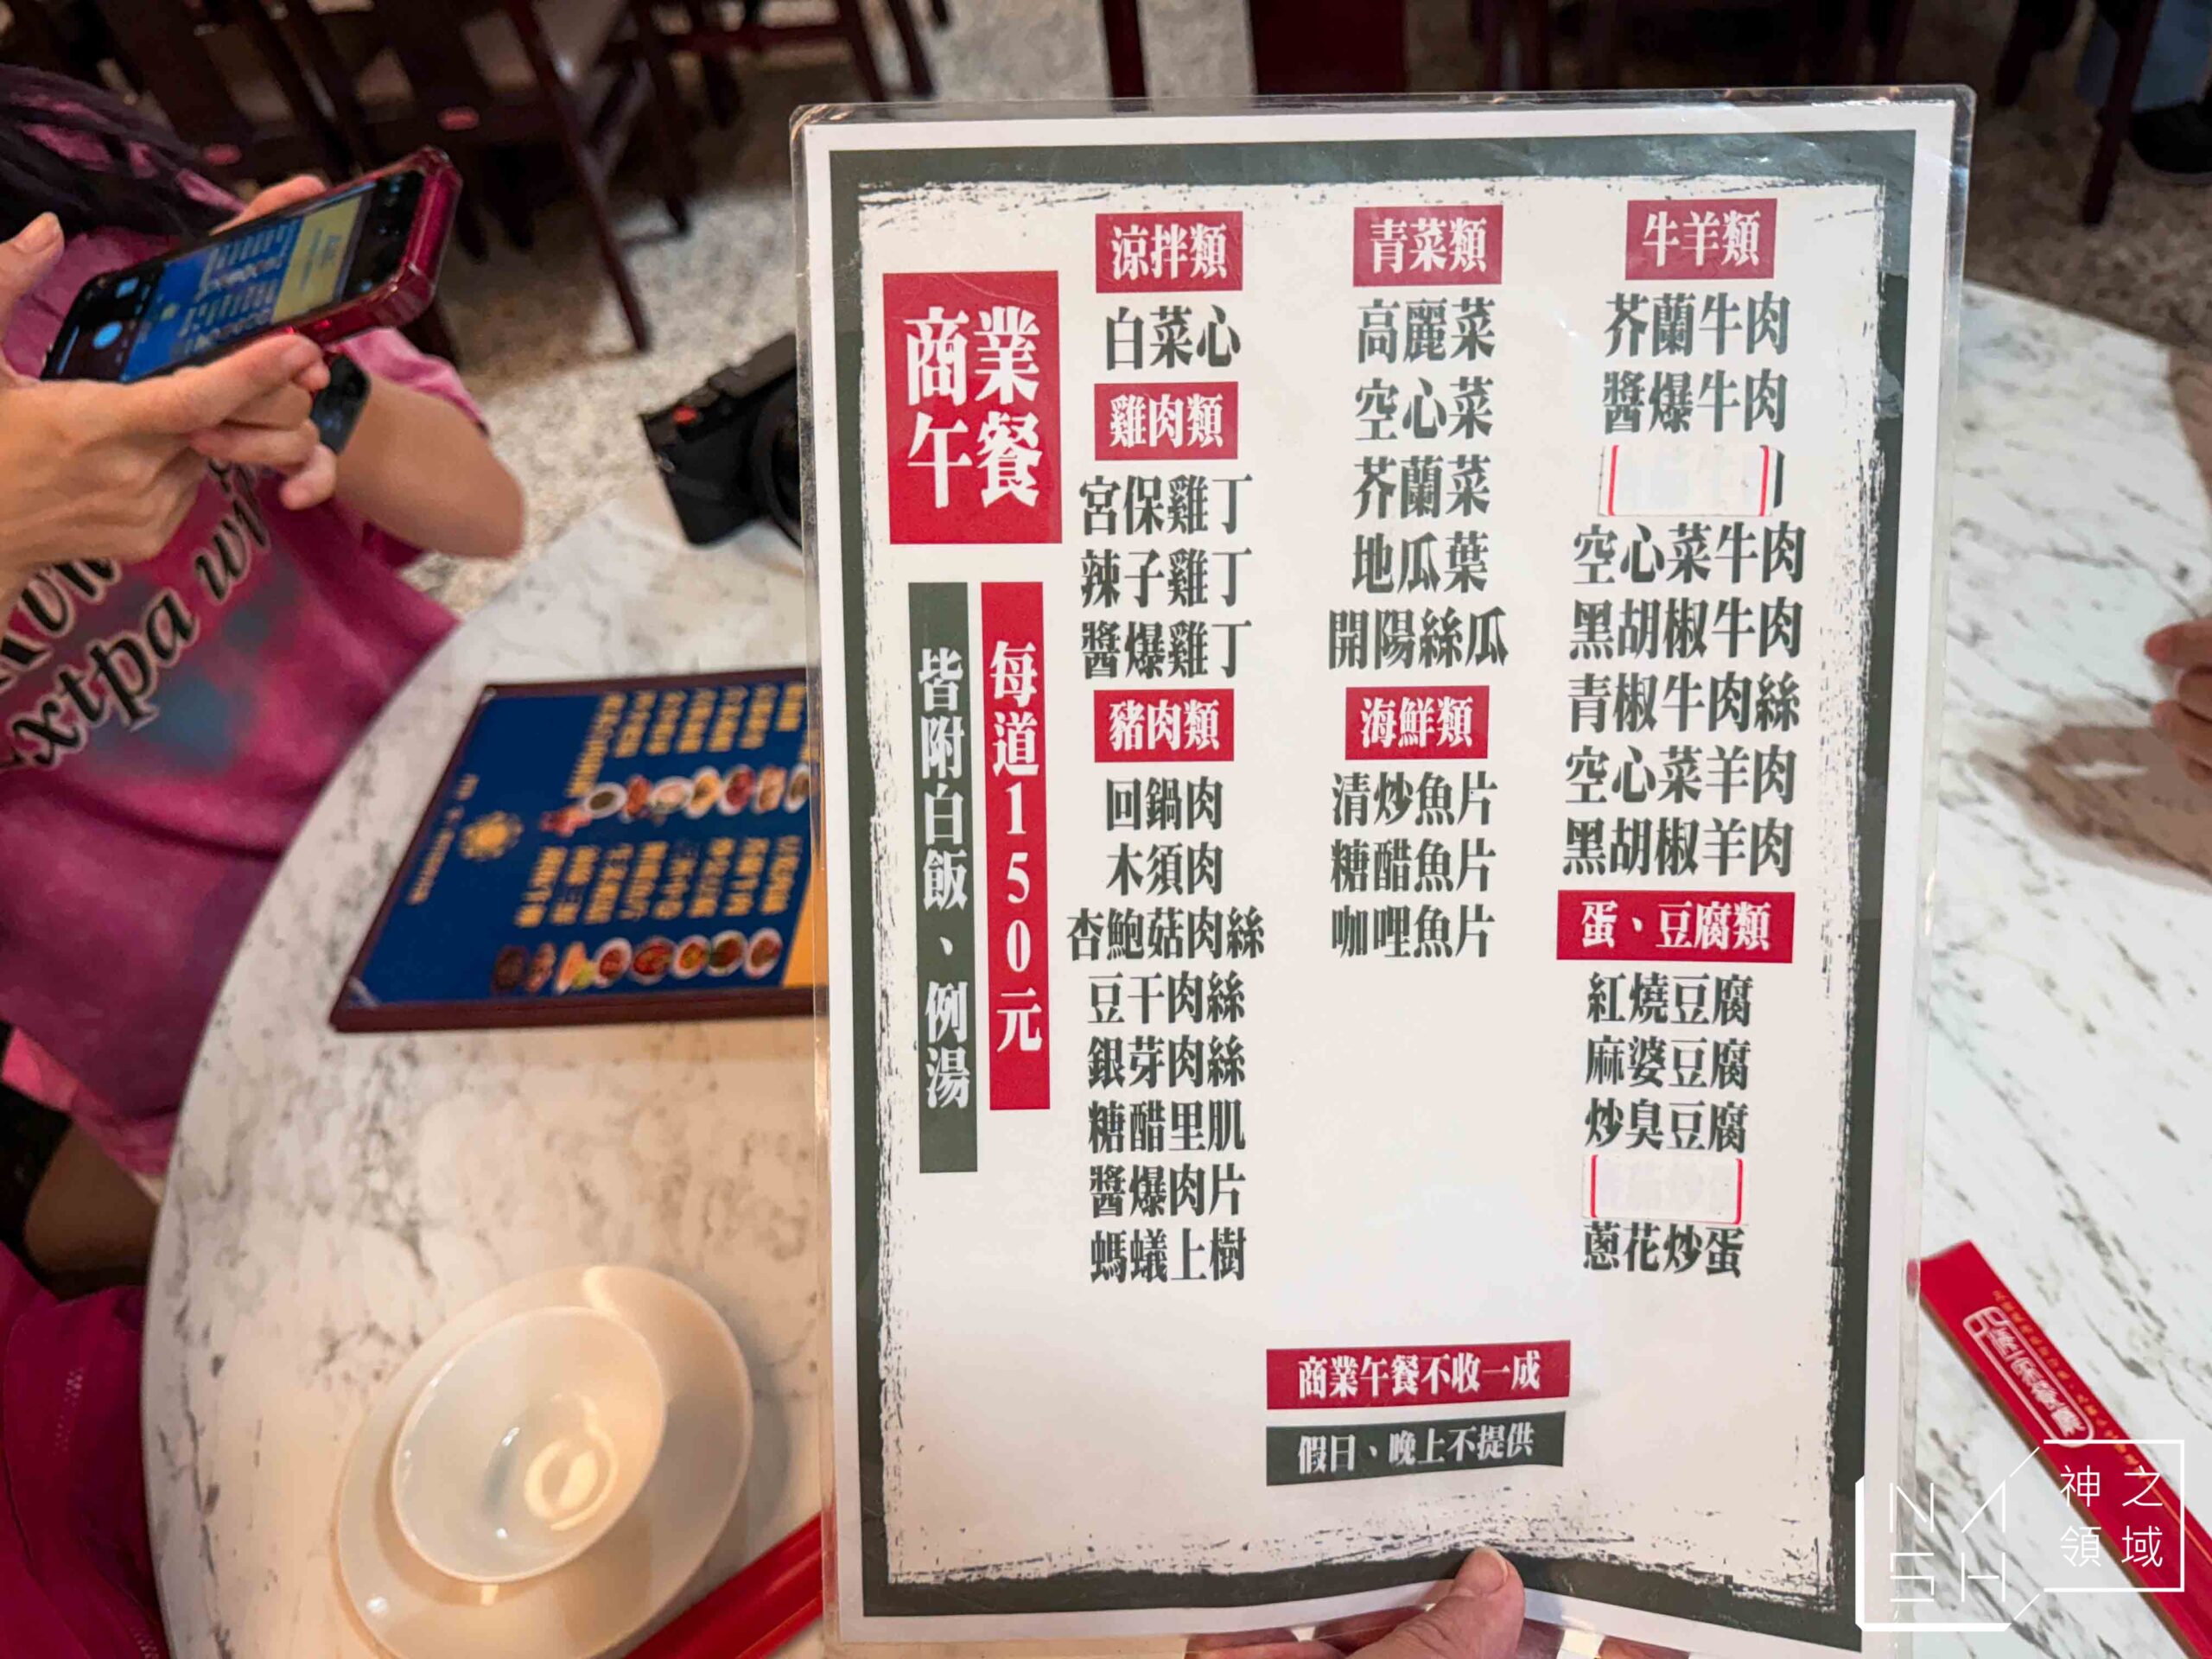 商業
午餐
每道150元
皆附白飯、例湯
涼拌類
白菜心
雞肉類
宮保雞丁
辣子雞丁
醬爆雞丁
豬肉類
回鍋肉
木須肉
杏鮑菇肉絲
豆干肉絲
銀芽肉絲
糖醋里肌
醬爆肉片
螞蟻上樹
青菜類
高麗菜
空心菜
芥蘭菜
地瓜葉
開陽絲瓜
海鮮類
清炒魚片
糖醋魚片
咖哩魚片
牛羊類
芥蘭牛肉
醬爆牛肉
空心菜牛肉
黑胡椒牛肉
青椒牛肉絲
空心菜羊肉
黑胡椒羊肉
蛋、豆腐類
紅燒豆腐
麻婆豆腐
炒臭豆腐
蔥花炒蛋
商業午餐不收一成
假日、晚上不提供
extpa wip
NASH
神之
領域